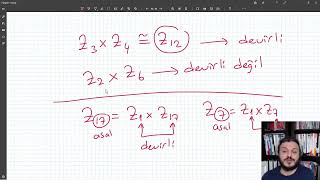 Z₃ x Z₄ ≅ Z₁₂ → devirli
Z₂ x Z₆ → devirli değil
Z₁₇ = Z₁ x Z₁₇
asal
devirli
Z₇ = Z₁ x Z₇
asal